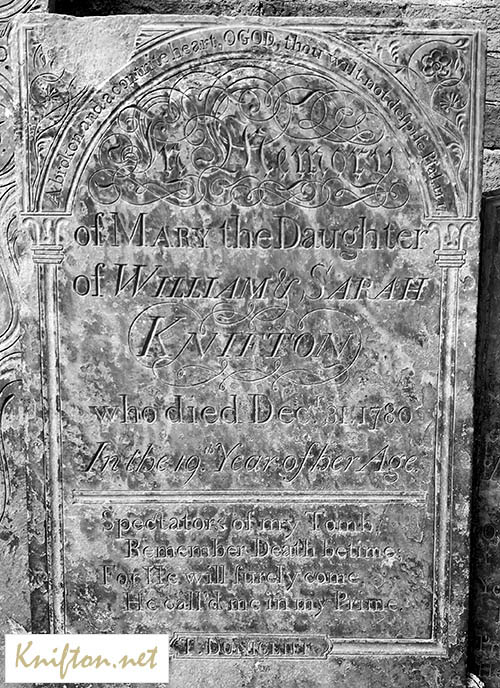 A broken and a contrite heart, O GOD, thou wilt not despise Psalm
In Memory
of MARY the Daughter
of WILLIAM & SARAH
KNIFTON
who died Decr. 31. 1780
In the 19th Year of her Age
Spectators of my Tomb,
Remember Death betime;
For He will ſurely come
He call'd me in my Prime.
Knifton.net